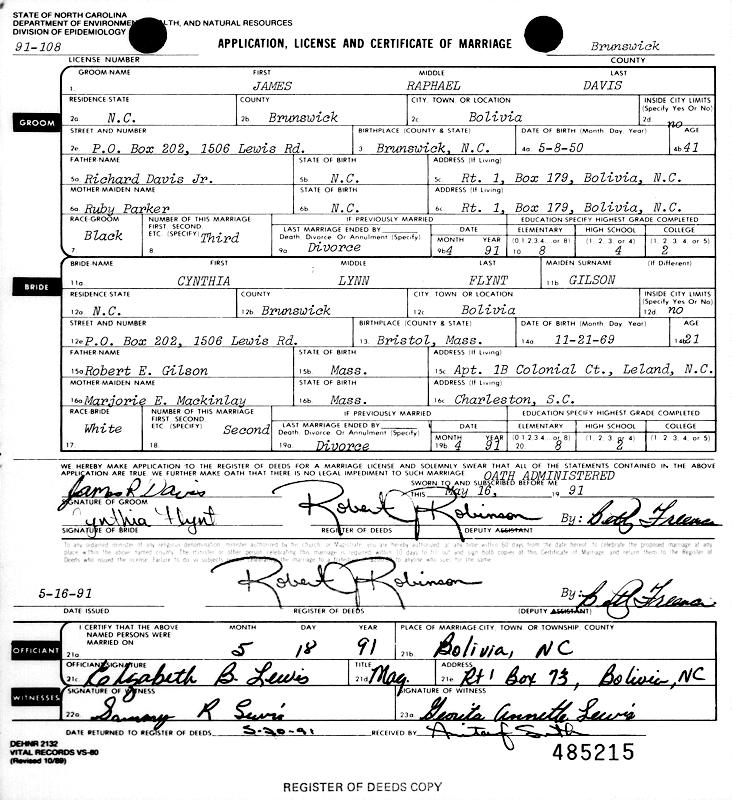 STATE OF NORTH CAROLINA
DEPARTMENT OF ENVIRONMEN LTH, AND NATURAL RESOURCES
DIVISION OF EPIDEMIOLOGY
91-108 APPLICATION, LICENSE AND CERTIFICATE OF MARRIAGE Brunswick
LICENSE NUMBER COUNTY
GROOM NAME FIRST MIDDLE LAST
1. JAMES RAPHAEL DAVIS
RESIDENCE STATE COUNTY CITY, TOWN, OR LOCATION INSIDE CITY LIMITS (Specify Yes Or No)
GROOM 2a N.C. 2b Brunswick 2c Bolivia 2d no
STREET AND NUMBER BIRTHPLACE (COUNTY & STATE) DATE OF BIRTH (Month Day Year) AGE
2e P.O. Box 202, 1506 Lewis Rd. 3 Brunswick, N.C. 4a 5-8-50 4b 41
FATHER NAME STATE OF BIRTH ADDRESS (If Living)
5a Richard Davis Jr. 5b N.C. 5c Rt. 1, Box 179, Bolivia, N.C.
MOTHER MAIDEN NAME STATE OF BIRTH ADDRESS (If Living)
6a Ruby Parker 6b N.C. 6c Rt. 1, Box 179, Bolivia, N.C.
RACE GROOM NUMBER OF THIS MARRIAGE FIRST, SECOND ETC. (SPECIFY) IF PREVIOUSLY MARRIED EDUCATION SPECIFY HIGHEST GRADE COMPLETED
LAST MARRIAGE ENDED BY Death, Divorce Or Annulment (Specify) DATE MONTH YEAR ELEMENTARY (0 1 2 3 4 .. or 8) HIGH SCHOOL (1, 2, 3, or 4) COLLEGE (1, 2, 3, 4, or 5)
7. Black 8 Third 9a Divorce 9b 4 91 10 8 4 2
BRIDE NAME FIRST MIDDLE LAST MAIDEN SURNAME (If Different)
11a. CYNTHIA LYNN FLYNT 11b GILSON
BRIDE RESIDENCE STATE COUNTY CITY TOWN, OR LOCATION INSIDE CITY LIMITS (Specify Yes Or No)
12a N.C. 12b Brunswick 12c Bolivia 12d. no
STREET AND NUMBER BIRTHPLACE (COUNTY & STATE) DATE OF BIRTH (Month Day Year) AGE
12e P.O. Box 202, 1506 Lewis Rd. 13. Bristol, Mass. 14a 11-21-69 14b 21
FATHER NAME STATE OF BIRTH ADDRESS (If Living)
15a Robert E. Gilson 15b Mass. 15c Apt. 1B Colonial Ct., Leland, N.C.
MOTHER MAIDEN NAME STATE OF BIRTH ADDRESS (If Living)
16a Marjorie E. Mackinlay 16b Mass. 16c Charleston, S.C.
RACE BRIDE NUMBER OF THIS MARRIAGE FIRST, SECOND ETC (SPECIFY) IF PREVIOUSLY MARRIED EDUCATION SPECIFY HIGHEST GRADE COMPLETED
LAST MARRIAGE ENDED BY Death, Divorce Or Annulment (Specify) DATE MONTH YEAR ELEMENTARY (0 1 2 3 4 .. or 8) HIGH SCHOOL (1, 2, 3 or 4) COLLEGE (1, 2, 3, 4, or 5)
17. White 18. Second 19a. Divorce 19b. 4 91 20. 8 2
WE HEREBY MAKE APPLICATION TO THE REGISTER OF DEEDS FOR A MARRIAGE LICENSE AND SOLEMNLY SWEAR THAT ALL OF THE STATEMENTS CONTAINED IN THE ABOVE
APPLICATION ARE TRUE. WE FURTHER MAKE OATH THAT THERE IS NO LEGAL IMPEDIMENT TO SUCH MARRIAGE OATH ADMINISTERED
SWORN TO AND SUBSCRIBED BEFORE ME
James R Davis THIS May 16, 19 91
SIGNATURE OF GROOM
Cynthia Flynt Robert J Robinson By: Beth Freeman
SIGNATURE OF BRIDE REGISTER OF DEEDS DEPUTY ASSISTANT
To any ordained minister of any religious denomination minister authorized by the church or Magistrate you are hereby authorized at any time within 60 days from the date hereof, to celebrate the proposed marriage at any
place within the above named county. The minister or other person celebrating this marriage is required within 10 days to fill out and sign both copies of this Certificate of Marriage and return them to the Register of
Deeds who issued the license. Failure to do so
5-16-91 Robert J Robinson By: Beth Freeman
DATE ISSUED REGISTER OF DEEDS (DEPUTY ASSISTANT)
I CERTIFY THAT THE ABOVE NAMED PERSONS WERE MARRIED ON MONTH DAY YEAR PLACE OF MARRIAGE-CITY TOWN OR TOWNSHIP COUNTY
OFFICIANT 21a 5 18 91 21b. Bolivia, NC
OFFICIANT SIGNATURE TITLE ADDRESS
21c. Elizabeth B. Lewis 21d Mag. 21e Rt 1 Box 73, Bolivia, NC
WITNESSES SIGNATURE OF WITNESS SIGNATURE OF WITNESS
22a Sammy R Lewis 23a Annette Lewis
DATE RETURNED TO REGISTER OF DEEDS 5-20-91 RECEIVED BY
DEHNR 2132
VITAL RECORDS VS-80
(Revised 10/89)
485215
REGISTER OF DEEDS COPY